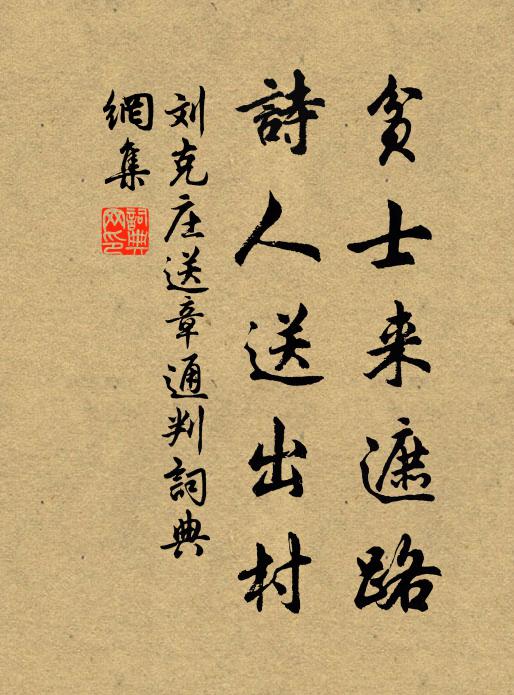 贫士来遮路
詩人送出村
刘克庄送章通判詞典
網集
詞典
网印